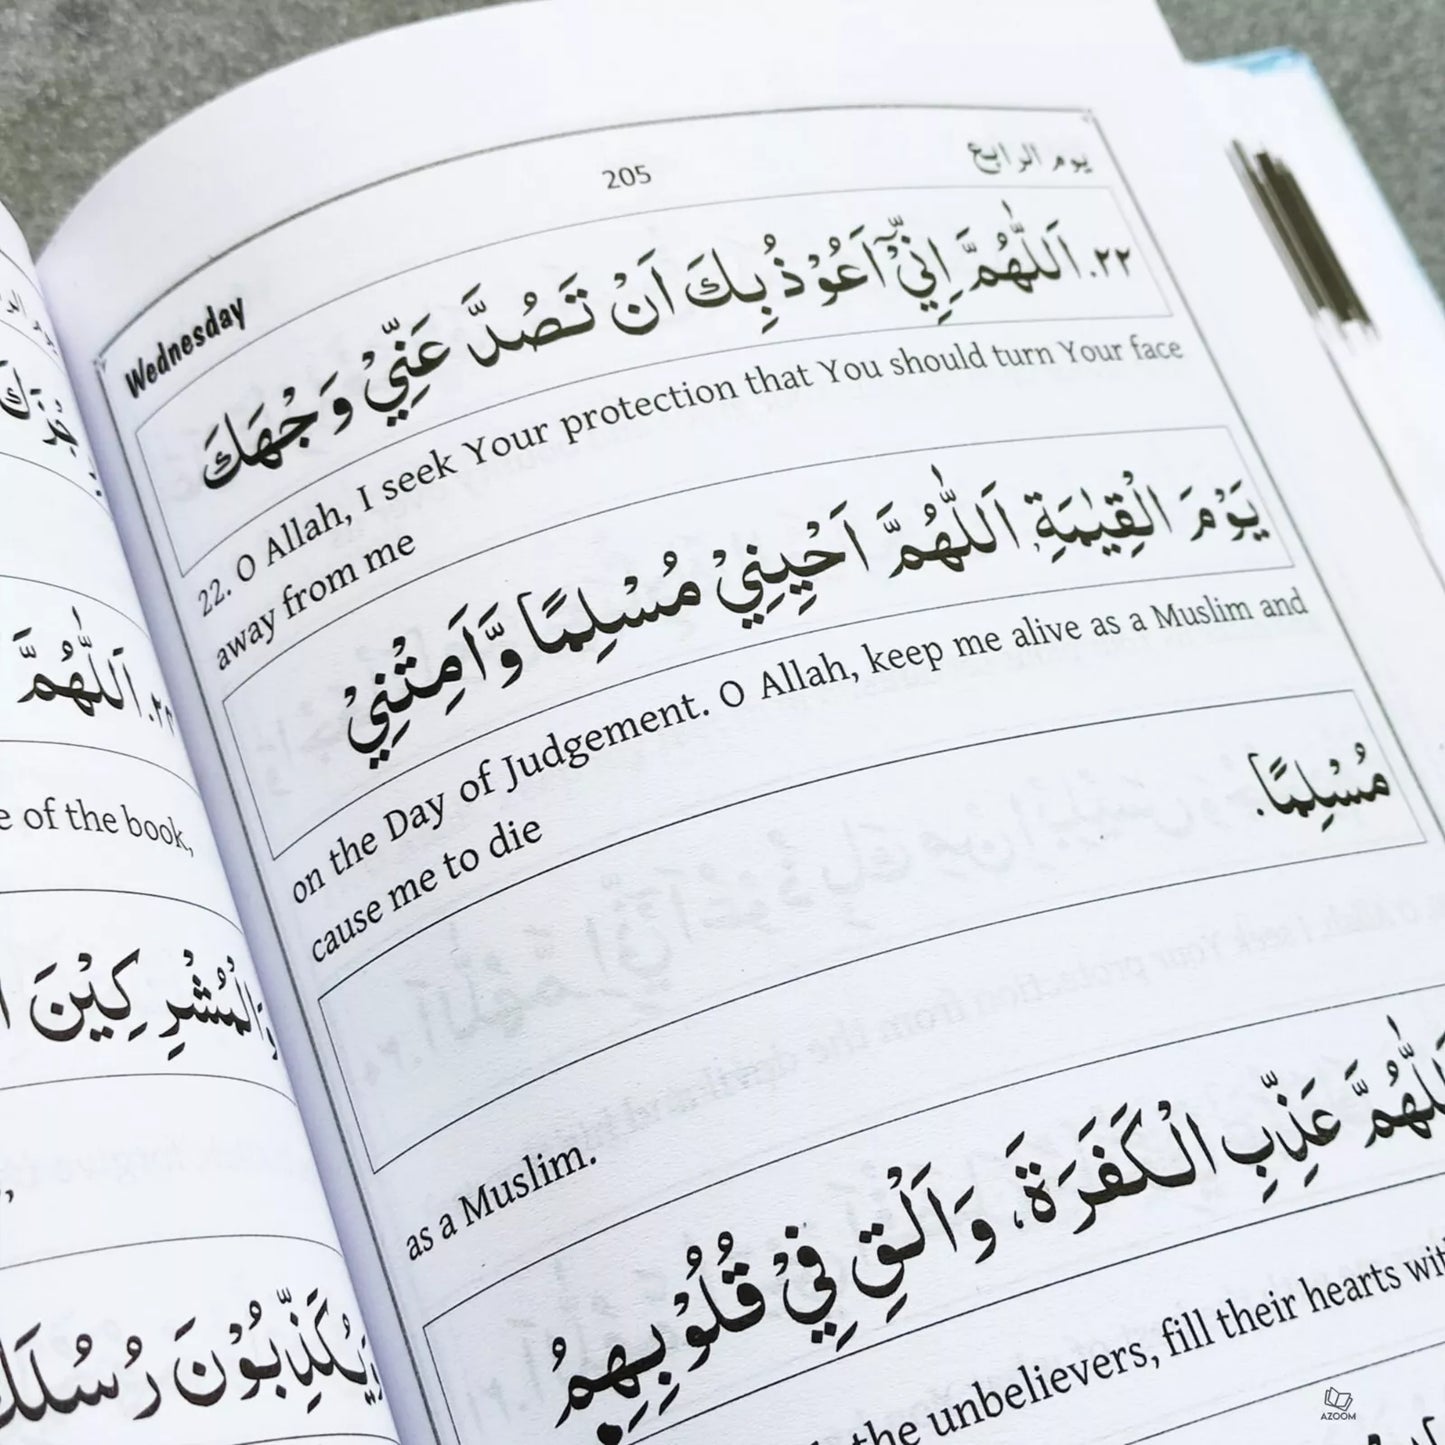 Wednesday 205 يوم الرابع
٢٢. اَللّٰهُمَّ اِنِّيْٓ اَعُوْذُ بِكَ اَنْ تَصُدَّ عَنِّيْ وَجْهَكَ
22. O Allah, I seek Your protection that You should turn Your face
away from me
يَوْمَ الْقِيٰمَةِ، اَللّٰهُمَّ اَحْيِنِيْ مُسْلِمًا وَّاَمِتْنِيْ
on the Day of Judgement. O Allah, keep me alive as a Muslim and
cause me to die
مُسْلِمًا.
as a Muslim.
اَللّٰهُمَّ عَذِّبِ الْكَفَرَةَ، وَاَلْقِ فِيْ قُلُوْبِهِمُ
the unbelievers, fill their hearts
اَللّٰهُمَّ
e of the book,
وَالْمُشْرِكِيْنَ
وَيُكَذِّبُوْنَ رُسُلَكَ
AZOOM